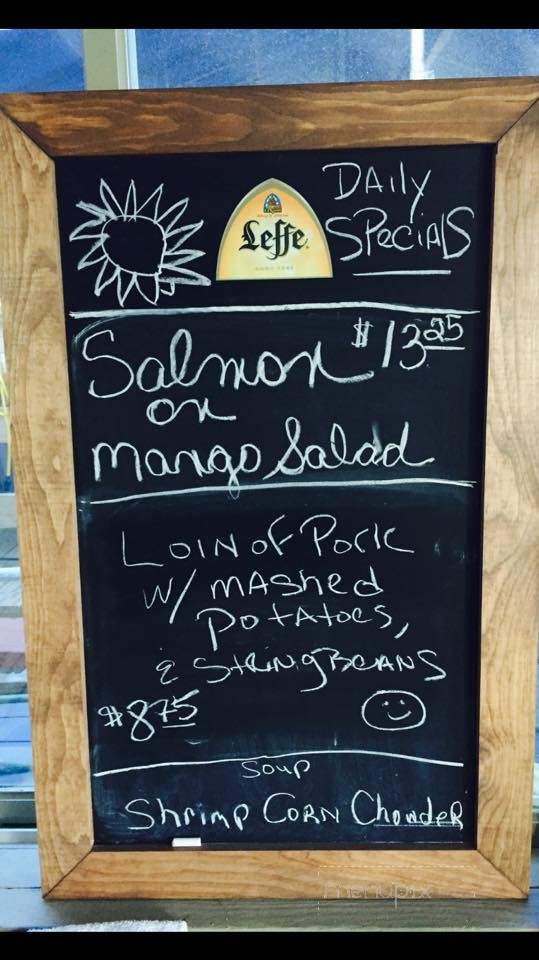 DAILY
SPECIALS
Leffe
Salmon $13.25
on
Mango Salad
LOIN OF PORK
W/ MASHED
POTATOES,
& STRING BEANS
$8.75
SOUP
SHRIMP CORN CHOWDER
menupix